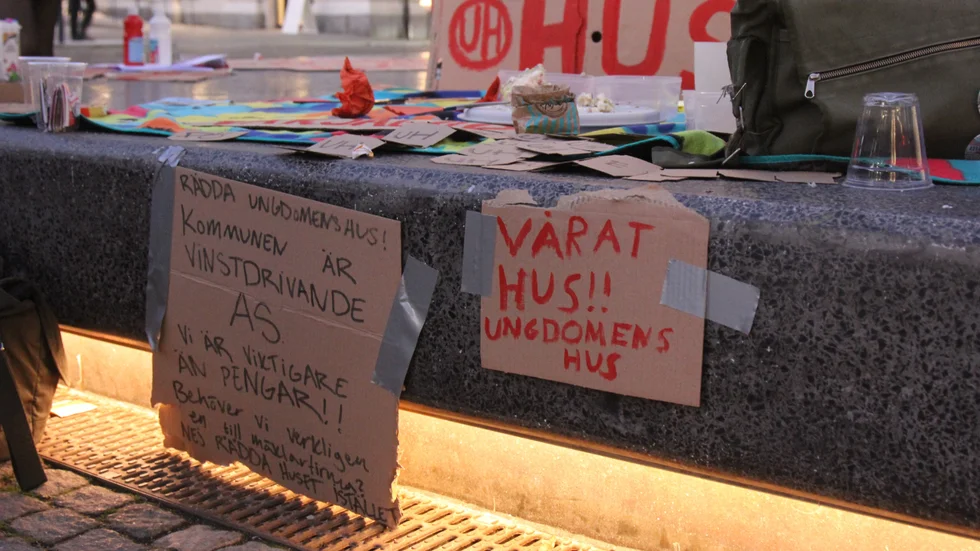 UH HUS
RÄDDA UNGDOMENSHUS!
KOMMUNEN ÄR
VINSTDRIVANDE
AS
Vi ÄR VIKTIGARE
ÄN PENGAR!!
Behöver vi verkligen
en till mäklarfirma?
NEJ RÄDDA HUSET ISTÄLLET
VÅRAT
HUS!!
UNGDOMENS
HUS